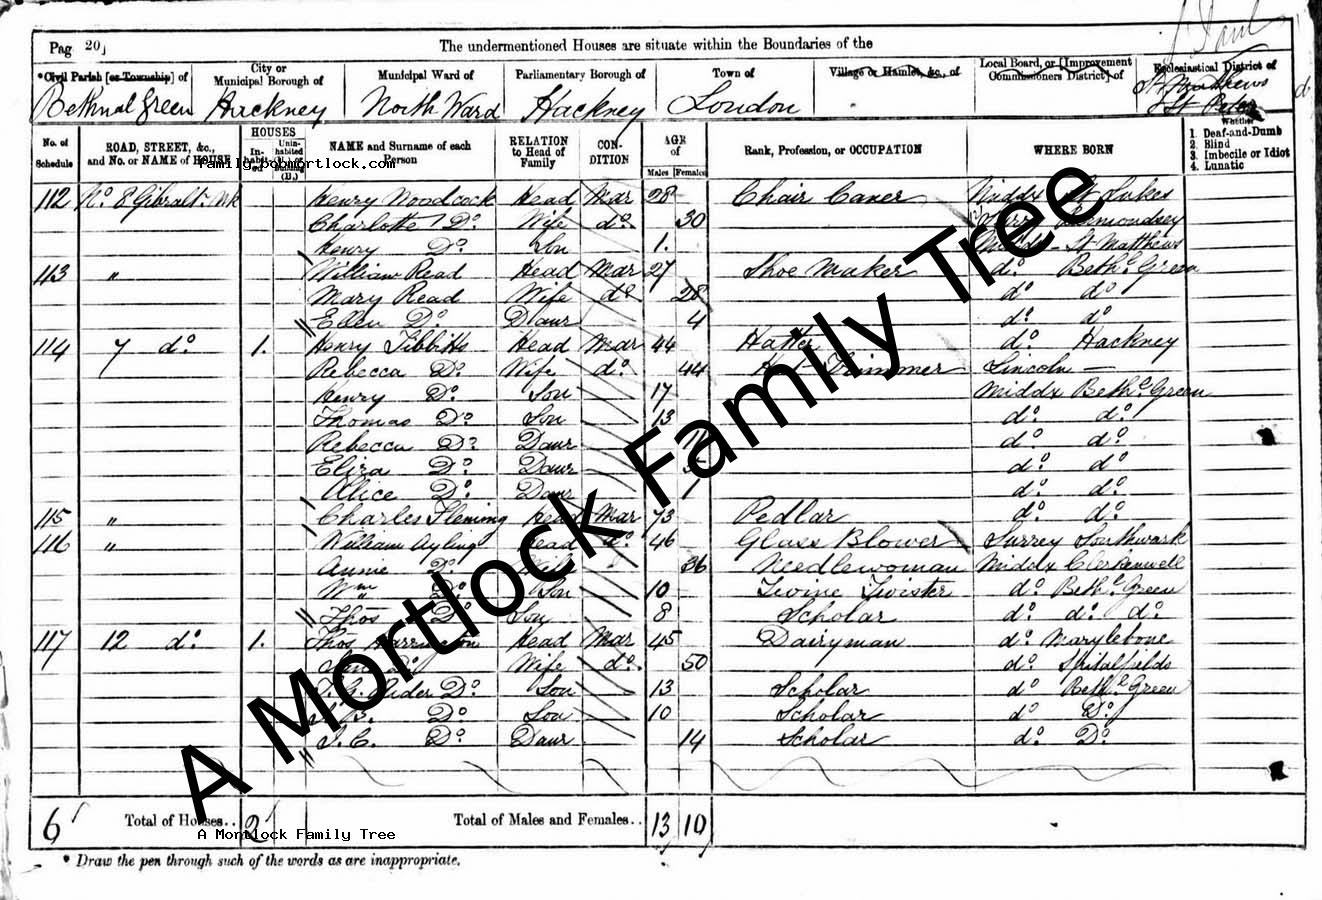 Pag 20
The undermentioned Houses are situate within the Boundaries of the
*Civil Parish [or Township] of
City or Municipal Borough of
Municipal Ward of
Parliamentary Borough of
Town of
Village or Hamlet, &c., of
Local Board, or [Improvement Commissioners District] of
Ecclesiastical District of
Bethnal Green Hackney North Ward Hackney London St Matthews
No. of Schedule
ROAD, STREET, &c., and No. or NAME of HOUSE
HOUSES
Inhabited
Uninhabited
NAME and Surname of each Person
RELATION to Head of Family
CONDITION
AGE of
Males Females
Rank, Profession, or OCCUPATION
WHERE BORN
Whether
1. Deaf-and-Dumb
2. Blind
3. Imbecile or Idiot
4. Lunatic
family.bobmortlock.com
112 No 8 Gibralt. Wk Henry Woodcock Head Mar 28 Chair Caner Middx St Lukes
Charlotte Do Wife do 30 Bermondsey
Henry Do Son 1. St Matthews
113 " William Read Head Mar 27 Shoe Maker do Beth. Green
Mary Read Wife do 28 do do
Ellen Do Daur 4 do do
114 7 do 1. Henry Tibbitts Head Mar 44 Hatter do Hackney
Rebecca Do Wife do 44 Hat Trimmer Lincoln —
Henry Do Son 17 Middx Beth. Green
Thomas Do Son 13 do do
Rebecca Do Daur do do
Eliza Do Daur do do
Alice Do Daur 1 do do
115 " Charles Fleming Head Mar 73 Pedlar do do
116 " William Ayling Head do 46 Glass Blower Surrey Southwark
Annie Do Wife 36 Needlewoman Middx Clerkenwell
Wm Do Son 10 Twine Twister do Beth. Green
Thos Do Son 8 Scholar do do do
117 12 do 1. Thos Harrington Head Mar 45 Dairyman do Marylebone
Do Wife do 50 do Spitalfields
Do Son 13 Scholar do Beth. Green
Do Son 10 Scholar do Do
J. C. Do Daur 14 Scholar do Do
A Mortlock Family Tree
6 Total of Houses.. 2 Total of Males and Females.. 13 10
A Mortlock Family Tree
* Draw the pen through such of the words as are inappropriate.